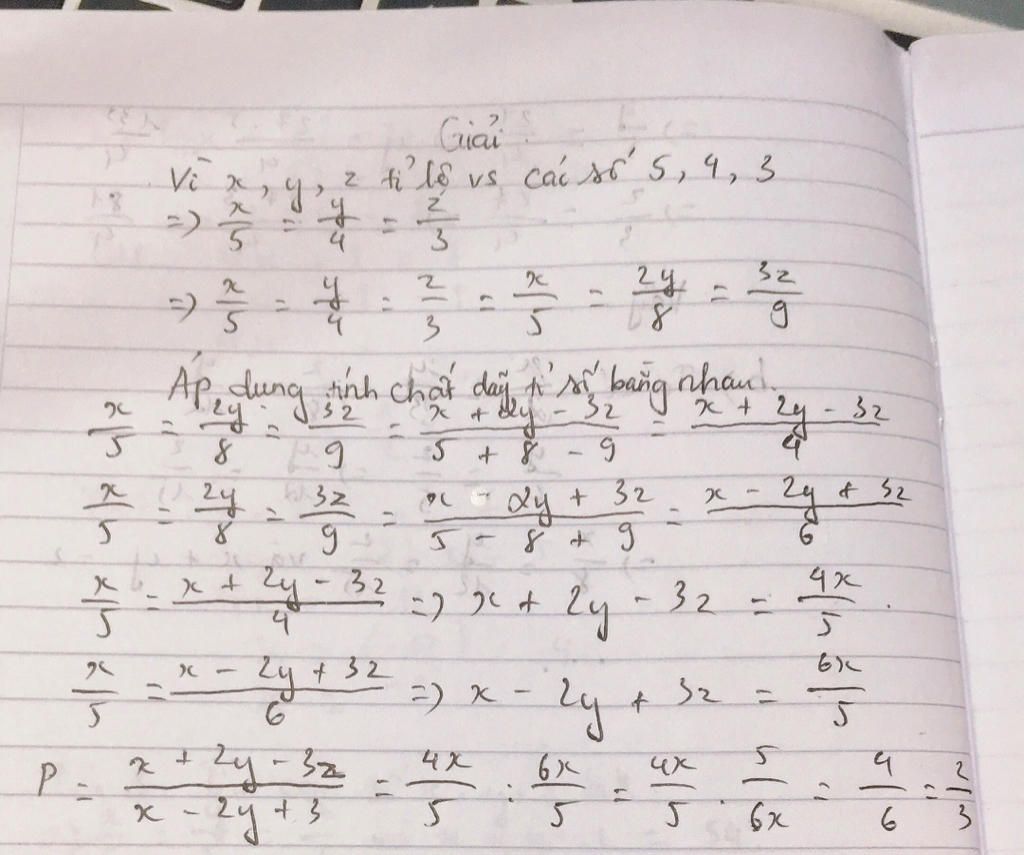 Giải
Vì x, y, z tỉ lệ vs các số 5, 4, 3
=> x/5 = y/4 = z/3
=> x/5 = y/4 = z/3 = x/5 = 2y/8 = 3z/9
Áp dụng tính chất dãy tỉ số bằng nhau.
x/5 = 2y/8 = 3z/9 = (x + 2y - 3z)/(5 + 8 - 9) = (x + 2y - 3z)/4
x/5 = 2y/8 = 3z/9 = (x - 2y + 3z)/(5 - 8 + 9) = (x - 2y + 3z)/6
x/5 = (x + 2y - 3z)/4 => x + 2y - 3z = 4x/5.
x/5 = (x - 2y + 3z)/6 => x - 2y + 3z = 6x/5
P = (x + 2y - 3z)/(x - 2y + 3) = 4x/5 : 6x/5 = 4x/5 . 5/6x = 4/6 = 2/3